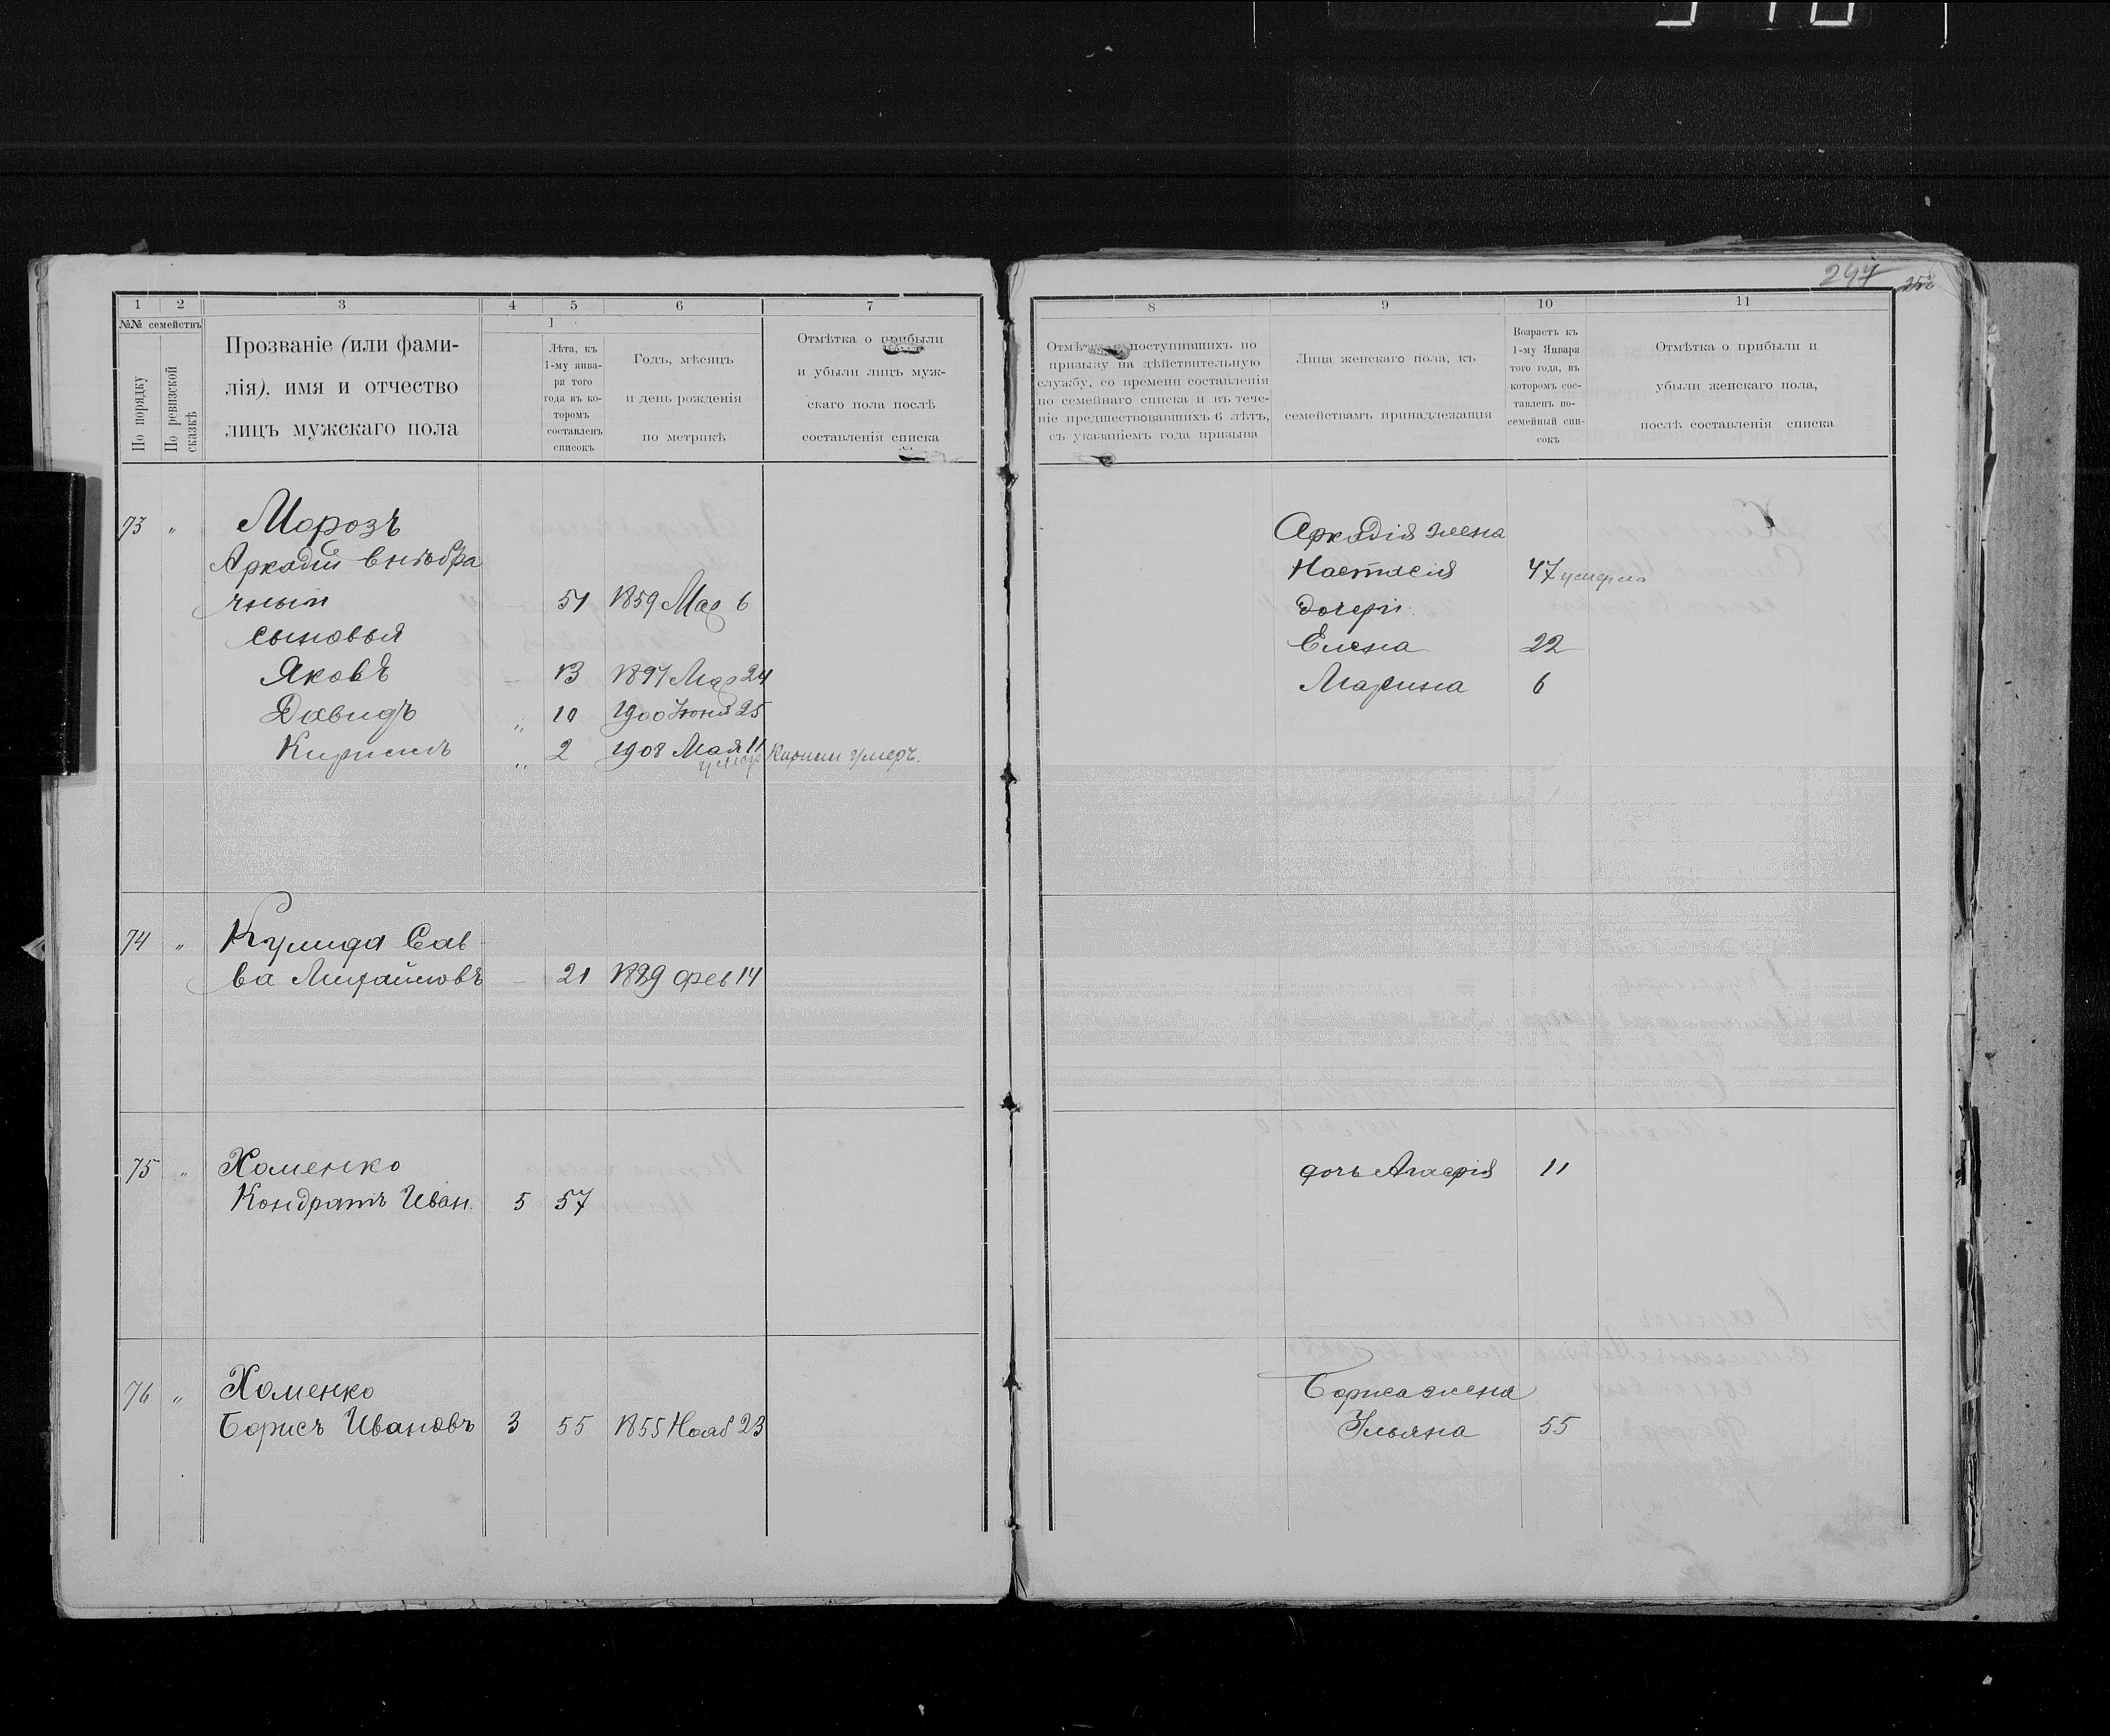 247
1 2 3 4 5 6 7
№№ семействъ
По порядку
По ревизской сказкѣ
Прозваніе (или фами-
лія), имя и отчество
лицъ мужскаго пола
1
Лѣта, къ
1-му янва-
ря того
года въ ко-
торомъ
составленъ
списокъ
Годъ, мѣсяцъ
и день рожденія
по метрикѣ
Отмѣтка о прибыли
и убыли лицъ муж-
скаго пола послѣ
составленія списка
73 " Морозъ
Аркадій внѣбра
чный 51 1859 Мар 6
сыновья
Яковъ 13 1897 Мар 24
Давидъ " 10 1900 Іюня 25
Кирилъ " 2 1908 Мая 11 Кирилл умеръ.
умер
74 " Кулида Сав-
ва Михайловъ 21 1889 Фев 14
75 " Хоменко
Кондратъ Иван. 5 57
76 " Хоменко
Борисъ Ивановъ 3 55 1855 Нояб 23
8 9 10 11
поступившихъ по
призыву на дѣйствительную
службу, со времени составленія
по семейнаго списка и въ тече-
ніе предшествовавшихъ 6 лѣтъ,
съ указаніемъ года призыва
Лица женскаго пола, къ
семействамъ принадлежащія
Возрастъ къ
1-му Января
того года, въ
которомъ сос-
тавленъ по-
семейный спи-
сокъ
Отмѣтка о прибыли и
убыли женскаго пола,
послѣ составленія списка
Аркадія жена
Настасія 47 умерла
дочери
Елена 22
Марина 6
дочь 11
Бориса жена
Ульяна 55